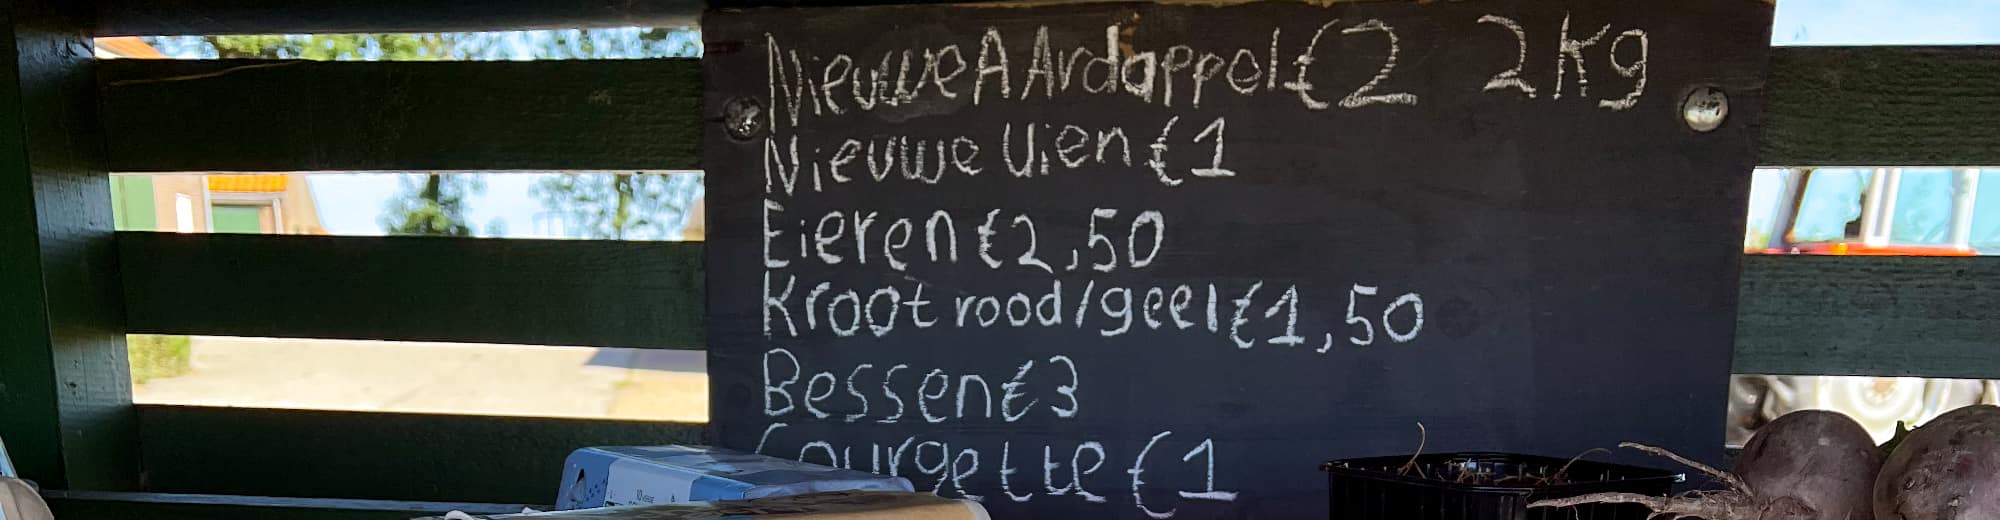 Nieuwe A Ardappel €2 2Kg
Nieuwe Uien €1
Eieren €2,50
Kroot rood/geel €1,50
Bessen €3
Courgette €1